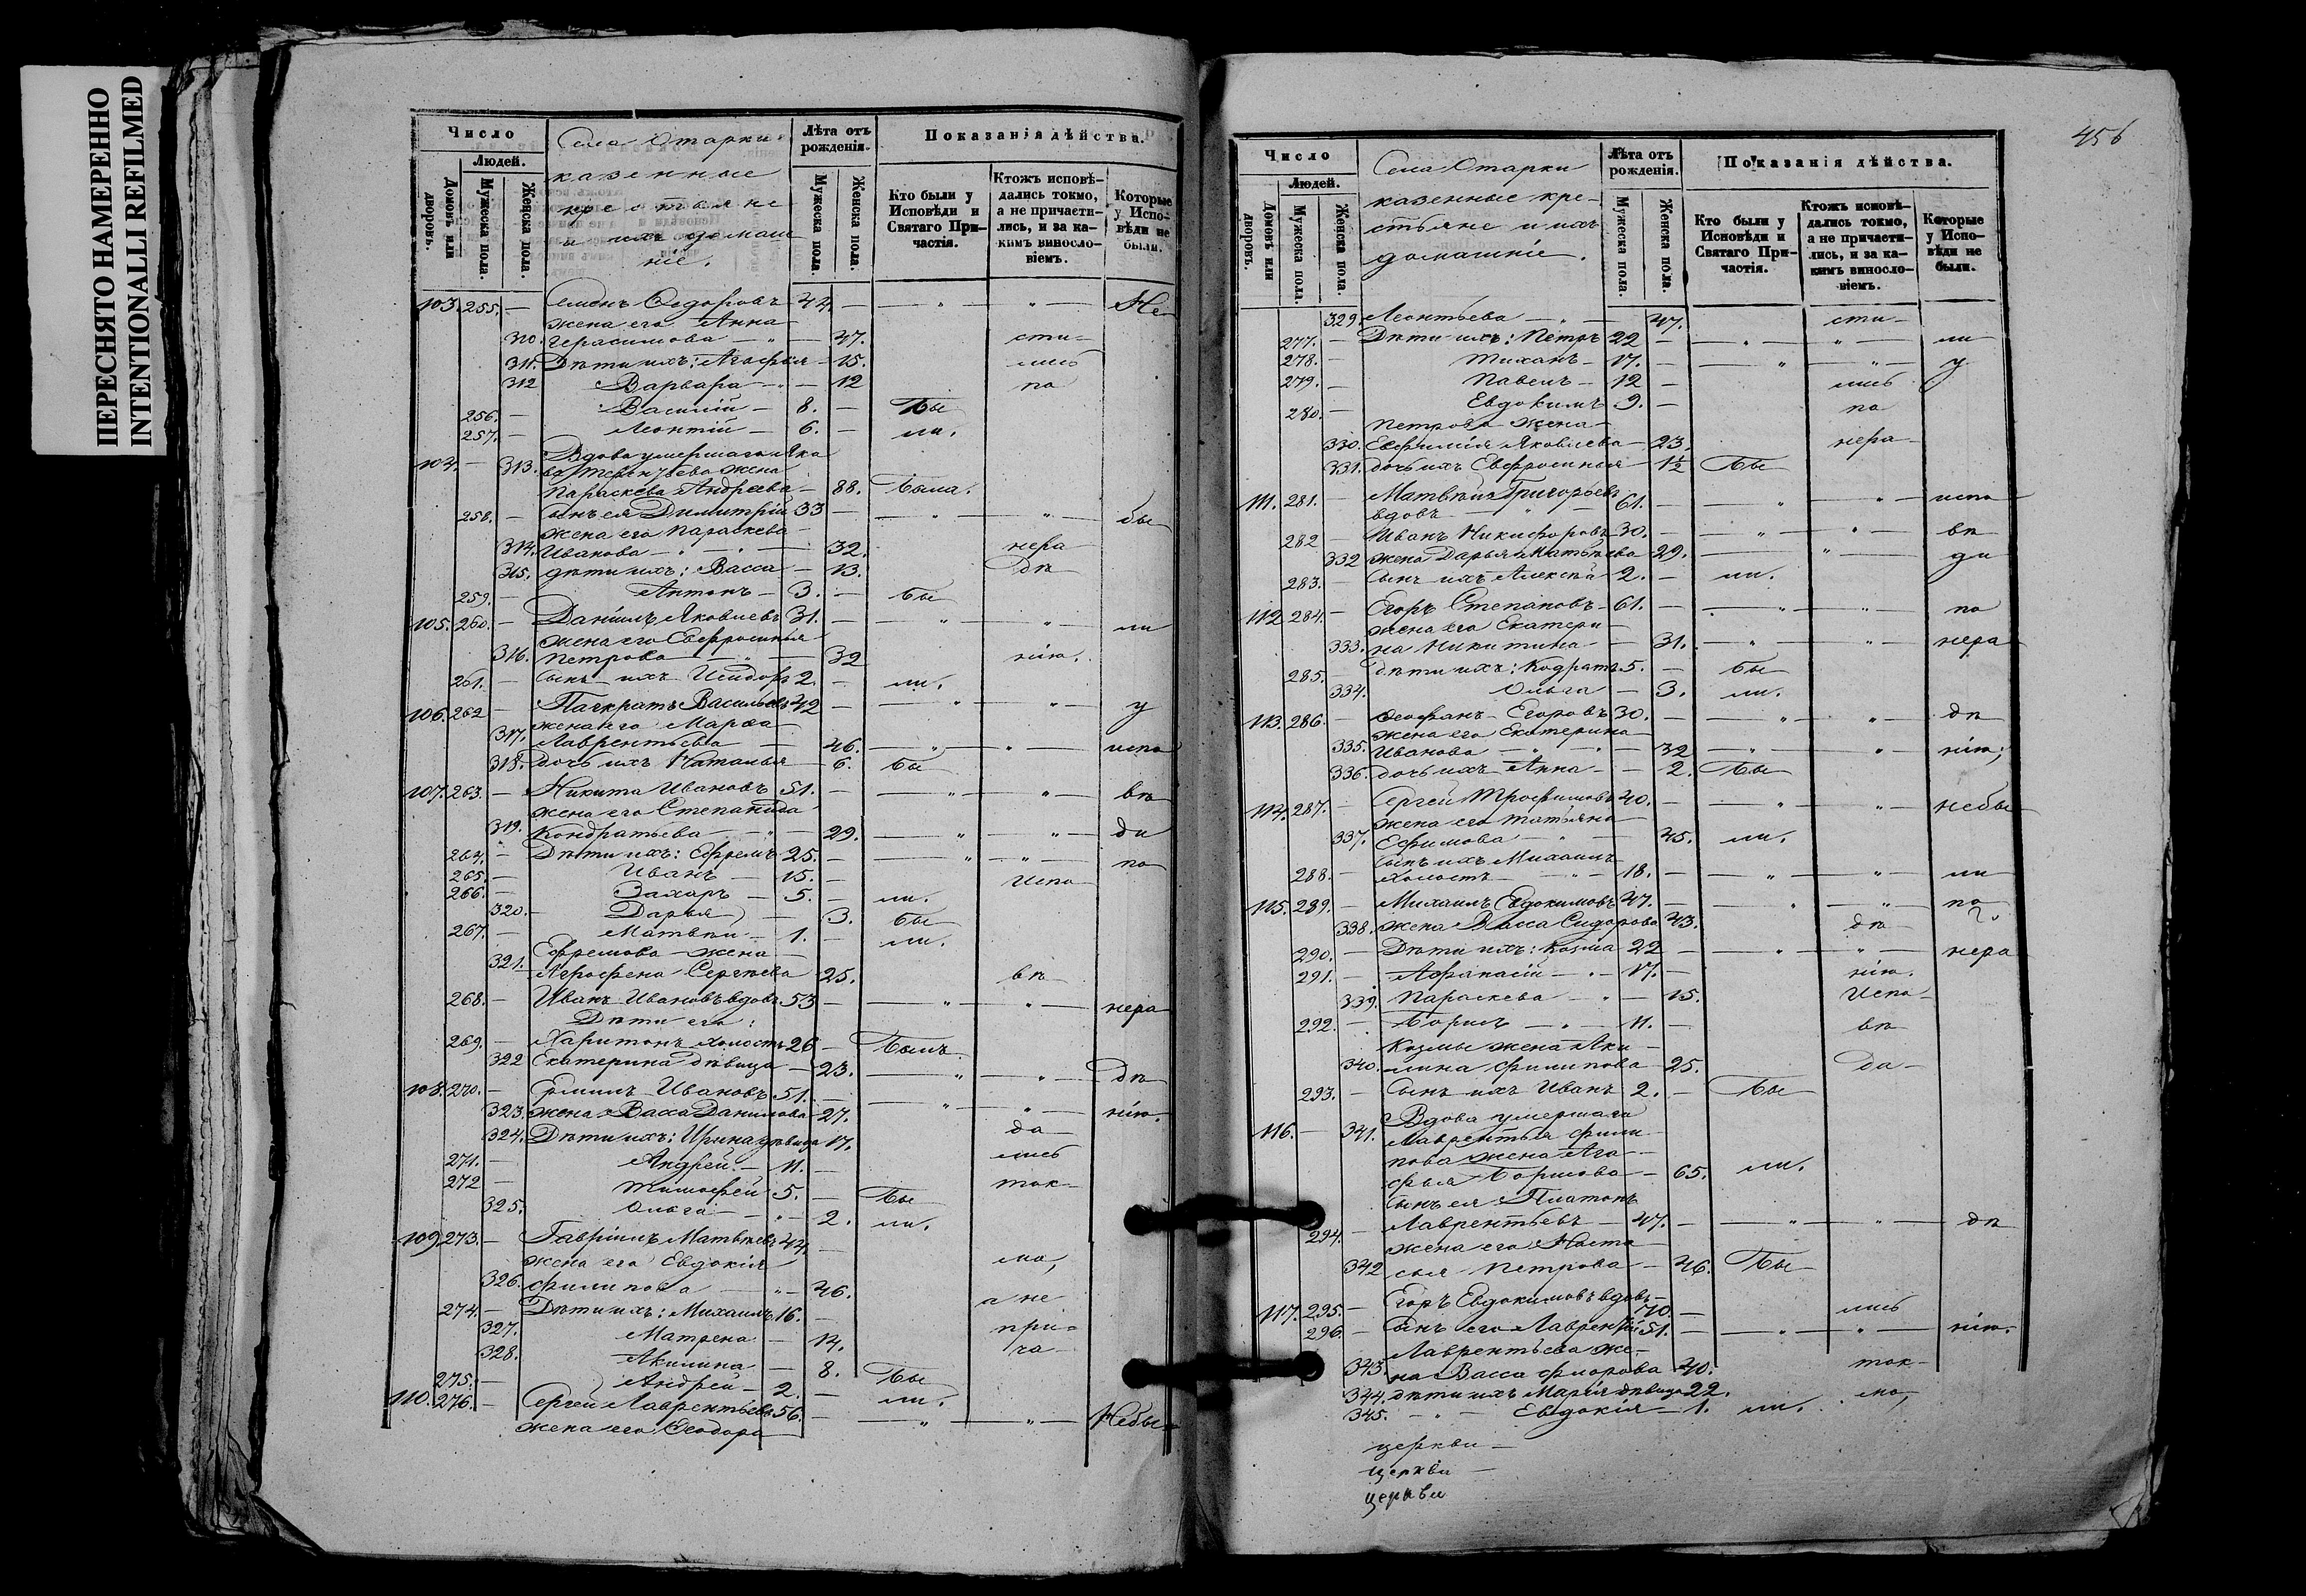 ПЕРЕСНЯТО НАМЕРЕННО
INTENTIONALLI REFILMED
Число
Людей.
Домовъ или дворовъ.
Мужеска пола.
Женска пола.
Села Отарки
казенные
крестьяне
и ихъ домаш
ніе.
Лѣта отъ рожденія.
Мужеска пола.
Женска пола.
Показанія дѣйства.
Кто были у Исповѣди и Святаго При-частія.
Ктожъ исповѣ-дались токмо, а не причасти-лись, и за ка-кимъ винос​ло-віемъ.
Которые у Испо-вѣди не были.
103. 255. — Семенъ Ѳедоровъ 44. — — " — " — Не
жена его Анна
310. Герасимова — " — 47. сти-
311. Дѣти ихъ: Агафья — 15. лись
312 Варвара — " — 12 по
256. — Василій — 8. — Бы
257. — Леонтій — 6. — ли.
104. — 313. Вдова умершаго Яко
ва Терентьева жена
Параскева Андреева — 88. Была.
258. — сынъ ея Димитрій 33 — — " — " — бы
жена его Параскева
314. Иванова — " — 32. нера
315. дѣти ихъ: Васса — 13. дѣ
259. — Антонъ — 3. — бы
105. 260. — Даніилъ Яковлевъ 31. — — " — " — ли
жена его Евфросинья
316. Петрова — " — 32 нію.
261. — сынъ ихъ Исидоръ 2. — ли.
106. 262 — Панкратъ Васильевъ 42 — — " — " — у
жена его Марѳа
317. Лаврентьева — 46. — " — " — испо
318. дочь ихъ Наталья — 6. бы
107. 263. — Никита Ивановъ 51. — — " — " — вѣ
жена его Степанида
319. Кондратьева — " — 29. — " — " — ди
264. — Дѣти ихъ: Ефремъ 25. — — " — " — по
265. — Иванъ — 15. — Испо
266. — Захаръ — 5. — ли.
320. — Дарья — 3. бы
267. — Матвѣй — 1. — ли.
Ефремова жена
321. Агрофена Сергѣева 25. вѣ
268. — Иванъ Ивановъ вдовъ 53 — — " — " — нера
Дѣти его:
269. — Харитонъ холостъ 26 — Былъ.
322 Екатерина дѣвица — 23. — " — " — дѣ
108. 270. — Ермилъ Ивановъ 51. — — " — " — нію.
323. жена Васса Данилова 27.
324. Дѣти ихъ: Ирина дѣвица 17. да
271. — Андрей — 11. — лись
272 — Тимофей 5. — ток-
325. Ольга — " — 2. Бы
ли.
109. 273. — Гавріилъ Матвѣевъ 44. —
жена его Евдокія мо,
326. Филипова — " — 46.
274. — Дѣти ихъ: Михаилъ 16. — а не
327. Матрена — 14. при-
328. Акилина — 8. ча-
275. — Андрей — 2. — Бы
110. 276. — Сергей Лаврентьевъ 56. — ли. — " — " — Небы
жена его Ѳеодора
456
Число
Людей.
Домовъ или дворовъ.
Мужеска пола.
Женска пола.
Села Отарки
казенные кре-
стьяне и ихъ
домашніе.
Лѣта отъ рожденія.
Мужеска пола.
Женска пола.
Показанія дѣйства.
Кто были у Исповѣди и Святаго При-частія.
Ктожъ исповѣ-дались токмо, а не причасти-лись, и за ка-кимъ винос​ло-віемъ.
Которые у Испо-вѣди не были.
329 Леонтьева — " — 47. сти-
277. — Дѣти ихъ: Петръ 22 — — " — " — ли
278. — 17. — — " — " — у
279. — Павелъ — 12 — лись
280. — Евдокимъ 9. — по
Петрова жена
330. Евфимія Яковлева — 23. нера-
331. дочь ихъ Евфросинья 1½ Бы
111. 281. — Матвѣй Григорьевъ
вдовъ — " — 61. — — " — " — испо
282 — Иванъ Никифоровъ 30. — — " — " — вѣ
332 жена Дарья Матвѣева 29. — " — ди
283. — сынъ ихъ Алексѣй 2. — ли.
112 284. — Егоръ Степановъ 61. — — " — " — по
жена его Екатери-
333. на Никитина — 31. — " — " — нера
285. — дѣти ихъ: Кодратъ 5. — бы
334. Ольга — 3. ли.
113. 286 — Ѳеофанъ Егоровъ 30. — — " — " — дѣ
жена его Екатерина
335. Иванова — " — 32 — " — " — нію;
336. дочь ихъ Анна — 2. Бы
114. 287. — Сергей Трофимовъ 40. — — " — " — небы
жена его Татьяна
337. Ефимова — " — 45. ли.
сынъ ихъ Михаилъ
288. — холостъ — " — 18. — — " — " — ли
115. 289. — Михаилъ Евдокимовъ 47. — — " — " — по
338. жена Васса Сидорова 43. дѣ
290. — Дѣти ихъ: Козма 22 — — " — " — нера
291. — Афанасій — " — 17. — нію.
339. Параскева — " — 15. Испо-
292. — Борисъ — " — 11. — вѣ
Козмы жена Аки-
340. лина Филипова 25. да-
293. — сынъ ихъ Иванъ 2. — Бы
Вдова умершаго
116. — 341. Лаврентья Фили-
пова жена Ага-
фья Борисова — 65. ли.
сынъ ея Платонъ
294. — Лаврентьевъ — 47. — — " — " — дѣ
жена его Наста-
342 сья Петрова — 46. Бы
117. 295. — Егоръ Евдокимовъ вдовъ — 70. — лись
296. — сынъ его Лаврентій 51. — — " — " — нію.
Лаврентьева же-
343. на Васса Фиорова 40. ток-
344. дѣти ихъ Марія дѣвица 22. мо,
345. — " — Евдокія — 1. ли.
церкви —
церкви —
церкви